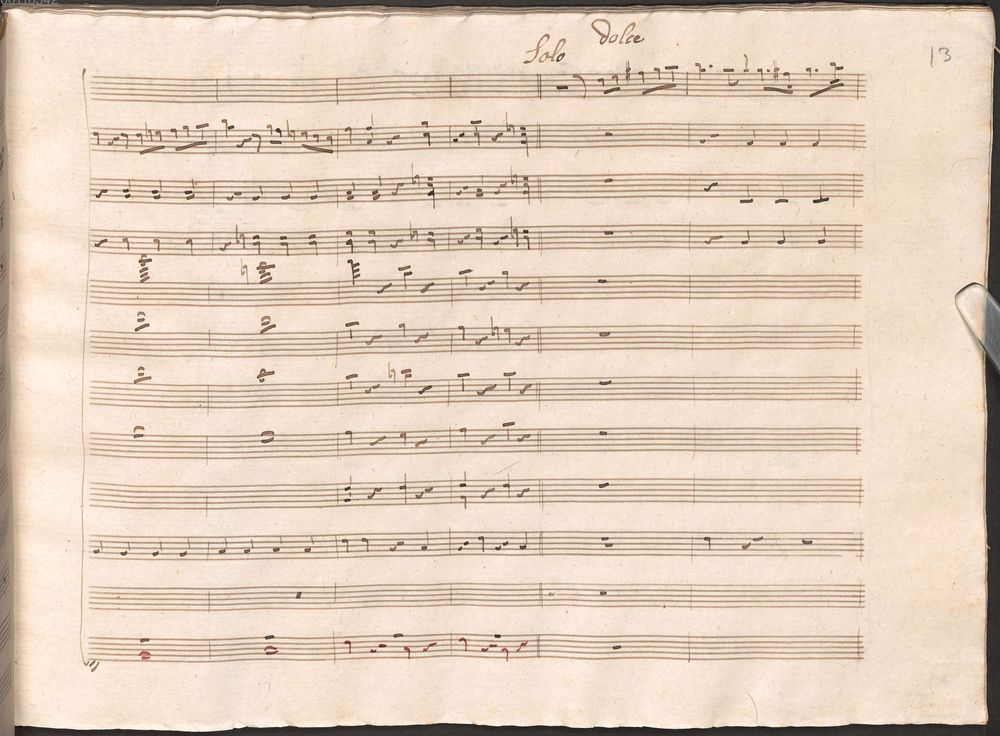 dolce
Solo
13